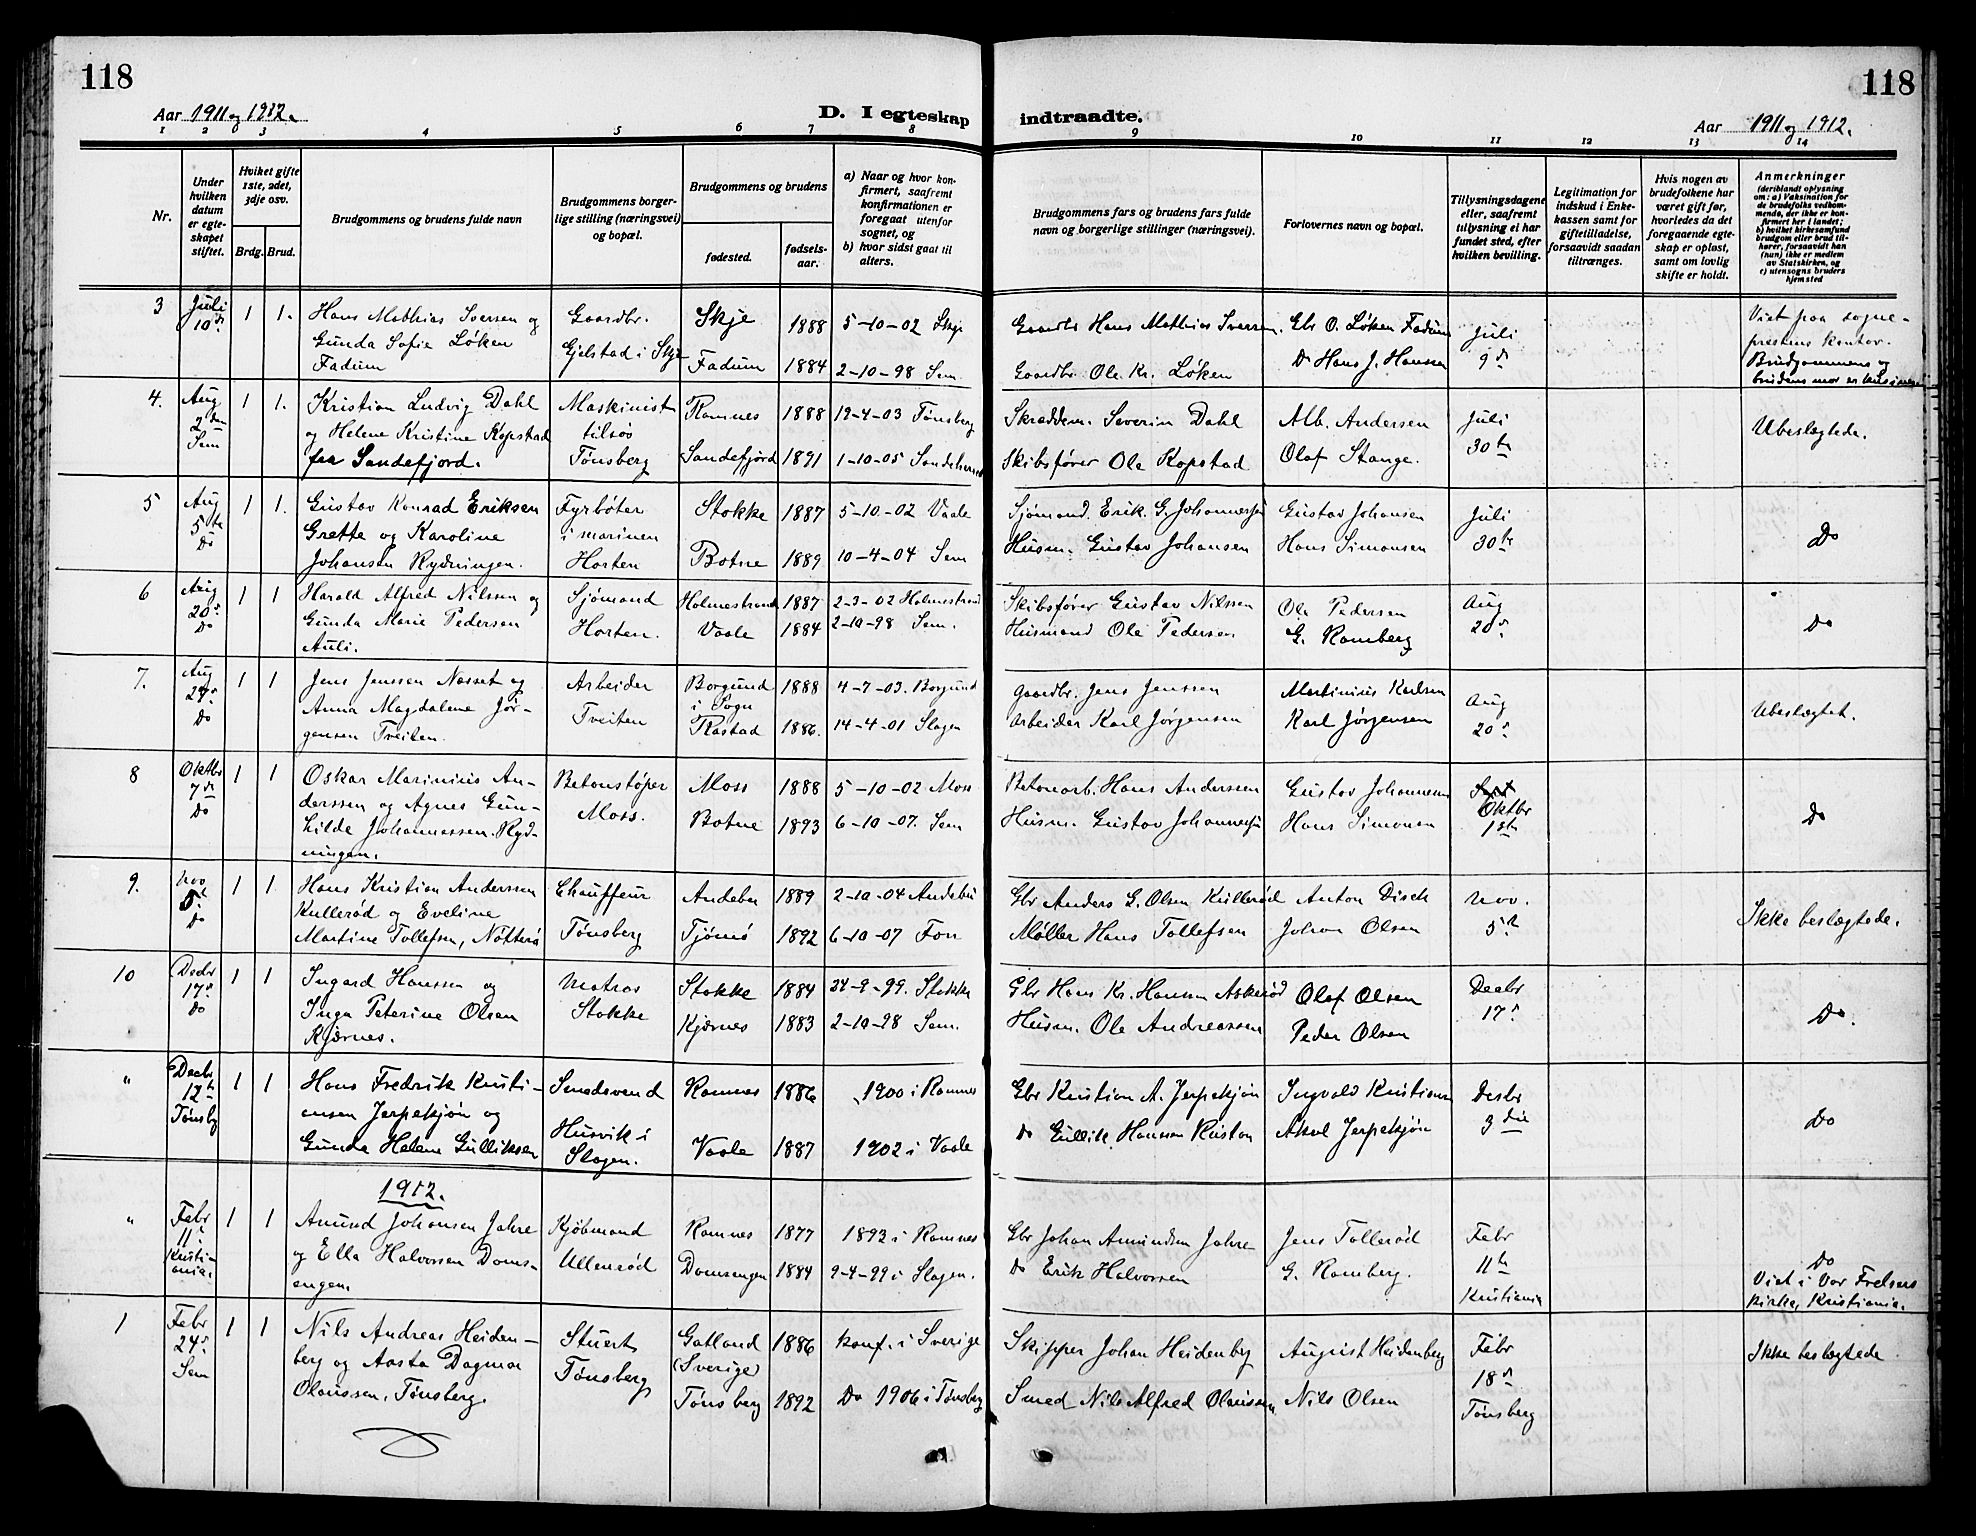 118
118
Aar 1911 og 1912.
D. I egteskap
indtraadte.
Aar 1911 og 1912.
1 2 3 4 5 6 7 8 9 10 11 12 13 14
Nr.
Under hvilken datum er egteskapet stiftet.
Hviket gifte 1ste, 2det, 3dje osv.
Brdg. Brud.
Brudgommens og brudens fulde navn
Brudgommens borgerlige stilling (næringsvei) og bopæl.
Brudgommens og brudens
fødested.
fødselsaar.
a) Naar og hvor konfirmert, saafremt konfirmationen er foregaat utenfor sognet, og
b) hvor sidst gaat til alters.
Brudgommens fars og brudens fars fulde navn og borgerlige stillinger (næringsvei).
Forlovernes navn og bopæl.
Tillysningsdagene eller, saafremt tillysning ei har fundet sted, efter hvilken bevilling.
Legitimation for indskud i Enkekassen samt for giftetilladelse, forsaavidt saadan tiltrænges.
Hvis nogen av brudefolkene har været gift før, hvorledes da det foregaaende egteskap er opløst, samt om lovlig skifte er holdt.
Anmerkninger
(deriblandt oplysning om: a) Vaksination for de brudefolks vedkommende, der ikke er konfirmert her i landet; b) hvilket kirkesamfund brudgom eller brud tilhører, forsaavidt han (hun) ikke er medlem av Statskirken, og c) utensogns bruders hjemsted
3 Juli 10de 1 1. Hans Mathias Iversen og Gunda Sofie Løken Fadum
Gaardbr. Gjelstad i Skje
Skje 1888 5-10-02 Skje
Fadum 1884 2-10-98 Sem
Gaardbr Hans Mathias Iversen.
Gaardbr. Ole Kr. Løken
Gbr O. Løken Fadum
Do Hans J. Hansen
Juli 9de
Viet paa sogneprestens kontor. Brudgommens og brudens mor er
4. Aug 2den Sem 1 1. Kristian Ludvig Dahl og Helene Kristine Kopstad fra Sandefjord.
Maskinist tilsøs Tønsberg
Ramnes 1888 19-4-03 Tønsberg
Sandefjord 1891 1-10-05
Skræddem. Severin Dahl
Skibsfører Ole Kopstad
Alb. Andersen
Olaf Stange.
Juli 30te
Ubeslægtede.
5 Aug 5te Do 1 1. Gustav Konrad Eriksen Grette og Karoline Johansen Rydningen.
Fyrbøter i marinen Horten
Stokke 1887 5-10-02 Vaale
Botne 1889 10-4-04 Sem
Sjømand. Erik. G. Johannessen
Husm. Gustav Johansen
Gustav Johansen
Hans Simonsen
Juli 30te
Do
6 Aug 20de Do 1 1 Harald Alfred Nilsen og Gunda Marie Pedersen Auli.
Sjømand Horten.
Holmestrand 1887 2-3-02 Holmestrand
Vaale 1884 2-10-98 Sem.
Skibsfører Gustav Nilssen
Husmand Ole Pedersen
Ole Pedersen
G. Ramberg
Aug 20de
Do
7. Aug Do 1 1 Jens Jenssen Nasset og Anna Magdalene Jørgensen Tveiten.
Arbeider Tveiten
Borgund i Sogn 1888 4-7-03. Borgund
Rastad 1886. 14-4-01 Slagen
Gaardbr. Jens Jenssen
Arbeider Karl Jørgensen
Martinius Karlsen
Karl Jørgensen
Aug 20de
Ubeslægtet.
8 Oktbr 7de Do 1 1 Oskar Marinius Anderssen og Agnes Gunhilde Johannessen Rydningen.
Betonstøper Moss.
Moss 1888 5-10-02 Moss
Botne 1893 6-10-07. Sem
Betonarb. Hans Anderssen
Husm. Gustav Johannessen
Gustav Johannessen
Hans Simonsen
Oktbr 1ste
Do
9. Nov 5te Do 1 1 Hans Kristian Anderssen Kullerød og Eveline Martine Tollefsen, Nøtterø
Chauffeur Tønsberg
Andebu 1889 2-10-04 Andebu
Tjømø 1892 6-10-07
Gbr Anders G. Olsen Kullerød
Møller Hans Tollefsen
Anton Disch
Johan Olsen
Nov. 5te
Ikke beslægtede.
10 Decbr 17de Do 1 1 Ingard Hanssen og Inga Peterine Olsen Kjærnes.
Matros Stokke
Stokke 1884 24-9-99. Stokke
Kjærnes 1883 2-10-98 Sem.
Gbr Hans Kr. Hansen Askerød
Husm. Ole Andreassen
Olaf Olsen
Peder Olsen
Decbr 17de
Do.
" Decbr 12te Tønsbg 1 1 Hans Fredrik Kristiansen Jerpekjøn og Gunda Helene Gulliksen
Smedsvend Husvik i Slagen.
Ramnes 1886 1900 i Ramnes
Vaale 1887 1902 i Vaale
Gbr Kristian A. Jerpekjøn
Do Gullik Hansen Ruston
Ingvald Kristiansen
Aksel Jerpekjøn
Desbr 3die
Do
1912.
" Febr 11te Kristiania. 1 1 Amund Johansen Jahre og Ella Halvorsen Domsengen.
Kjøbmand Ullensrød
Ramnes 1877 1892 i Ramnes
Domsengen 1884 9-4-99 i Slagen.
Gbr Johan Amundsen Jahre
Do Erik Halvorssen
Jens Tollerød
G. Ramberg.
Febr 11te Kristiania
Do Viet i Vor Frelsers Kirke, Kristiania.
1 Febr 24de Sem 1 1 Nils Andreas Heidenberg og Aasta Dagmar Olaussen, Tønsberg.
Stuert Tønsberg
Gotland (Sverige) 1886 konf. i Sverige
Tønsberg 1892 Do 1906 i Tønsberg
Skipper Johan Heidenbg
Smed Nils Alfred Olaussen
August Heidenberg
Nils Olsen
Febr 18de Tønsberg
Ikke beslægtede